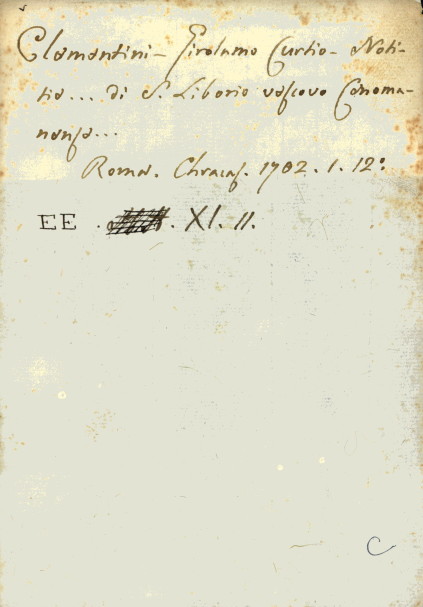 Clementini- Girolamo Curtio- Noti-
tia... di S. Liborio vescovo Cenoma-
nense...
Roma. Chracas. 1702. 1. 12°.
EE . . XI. 11.
C